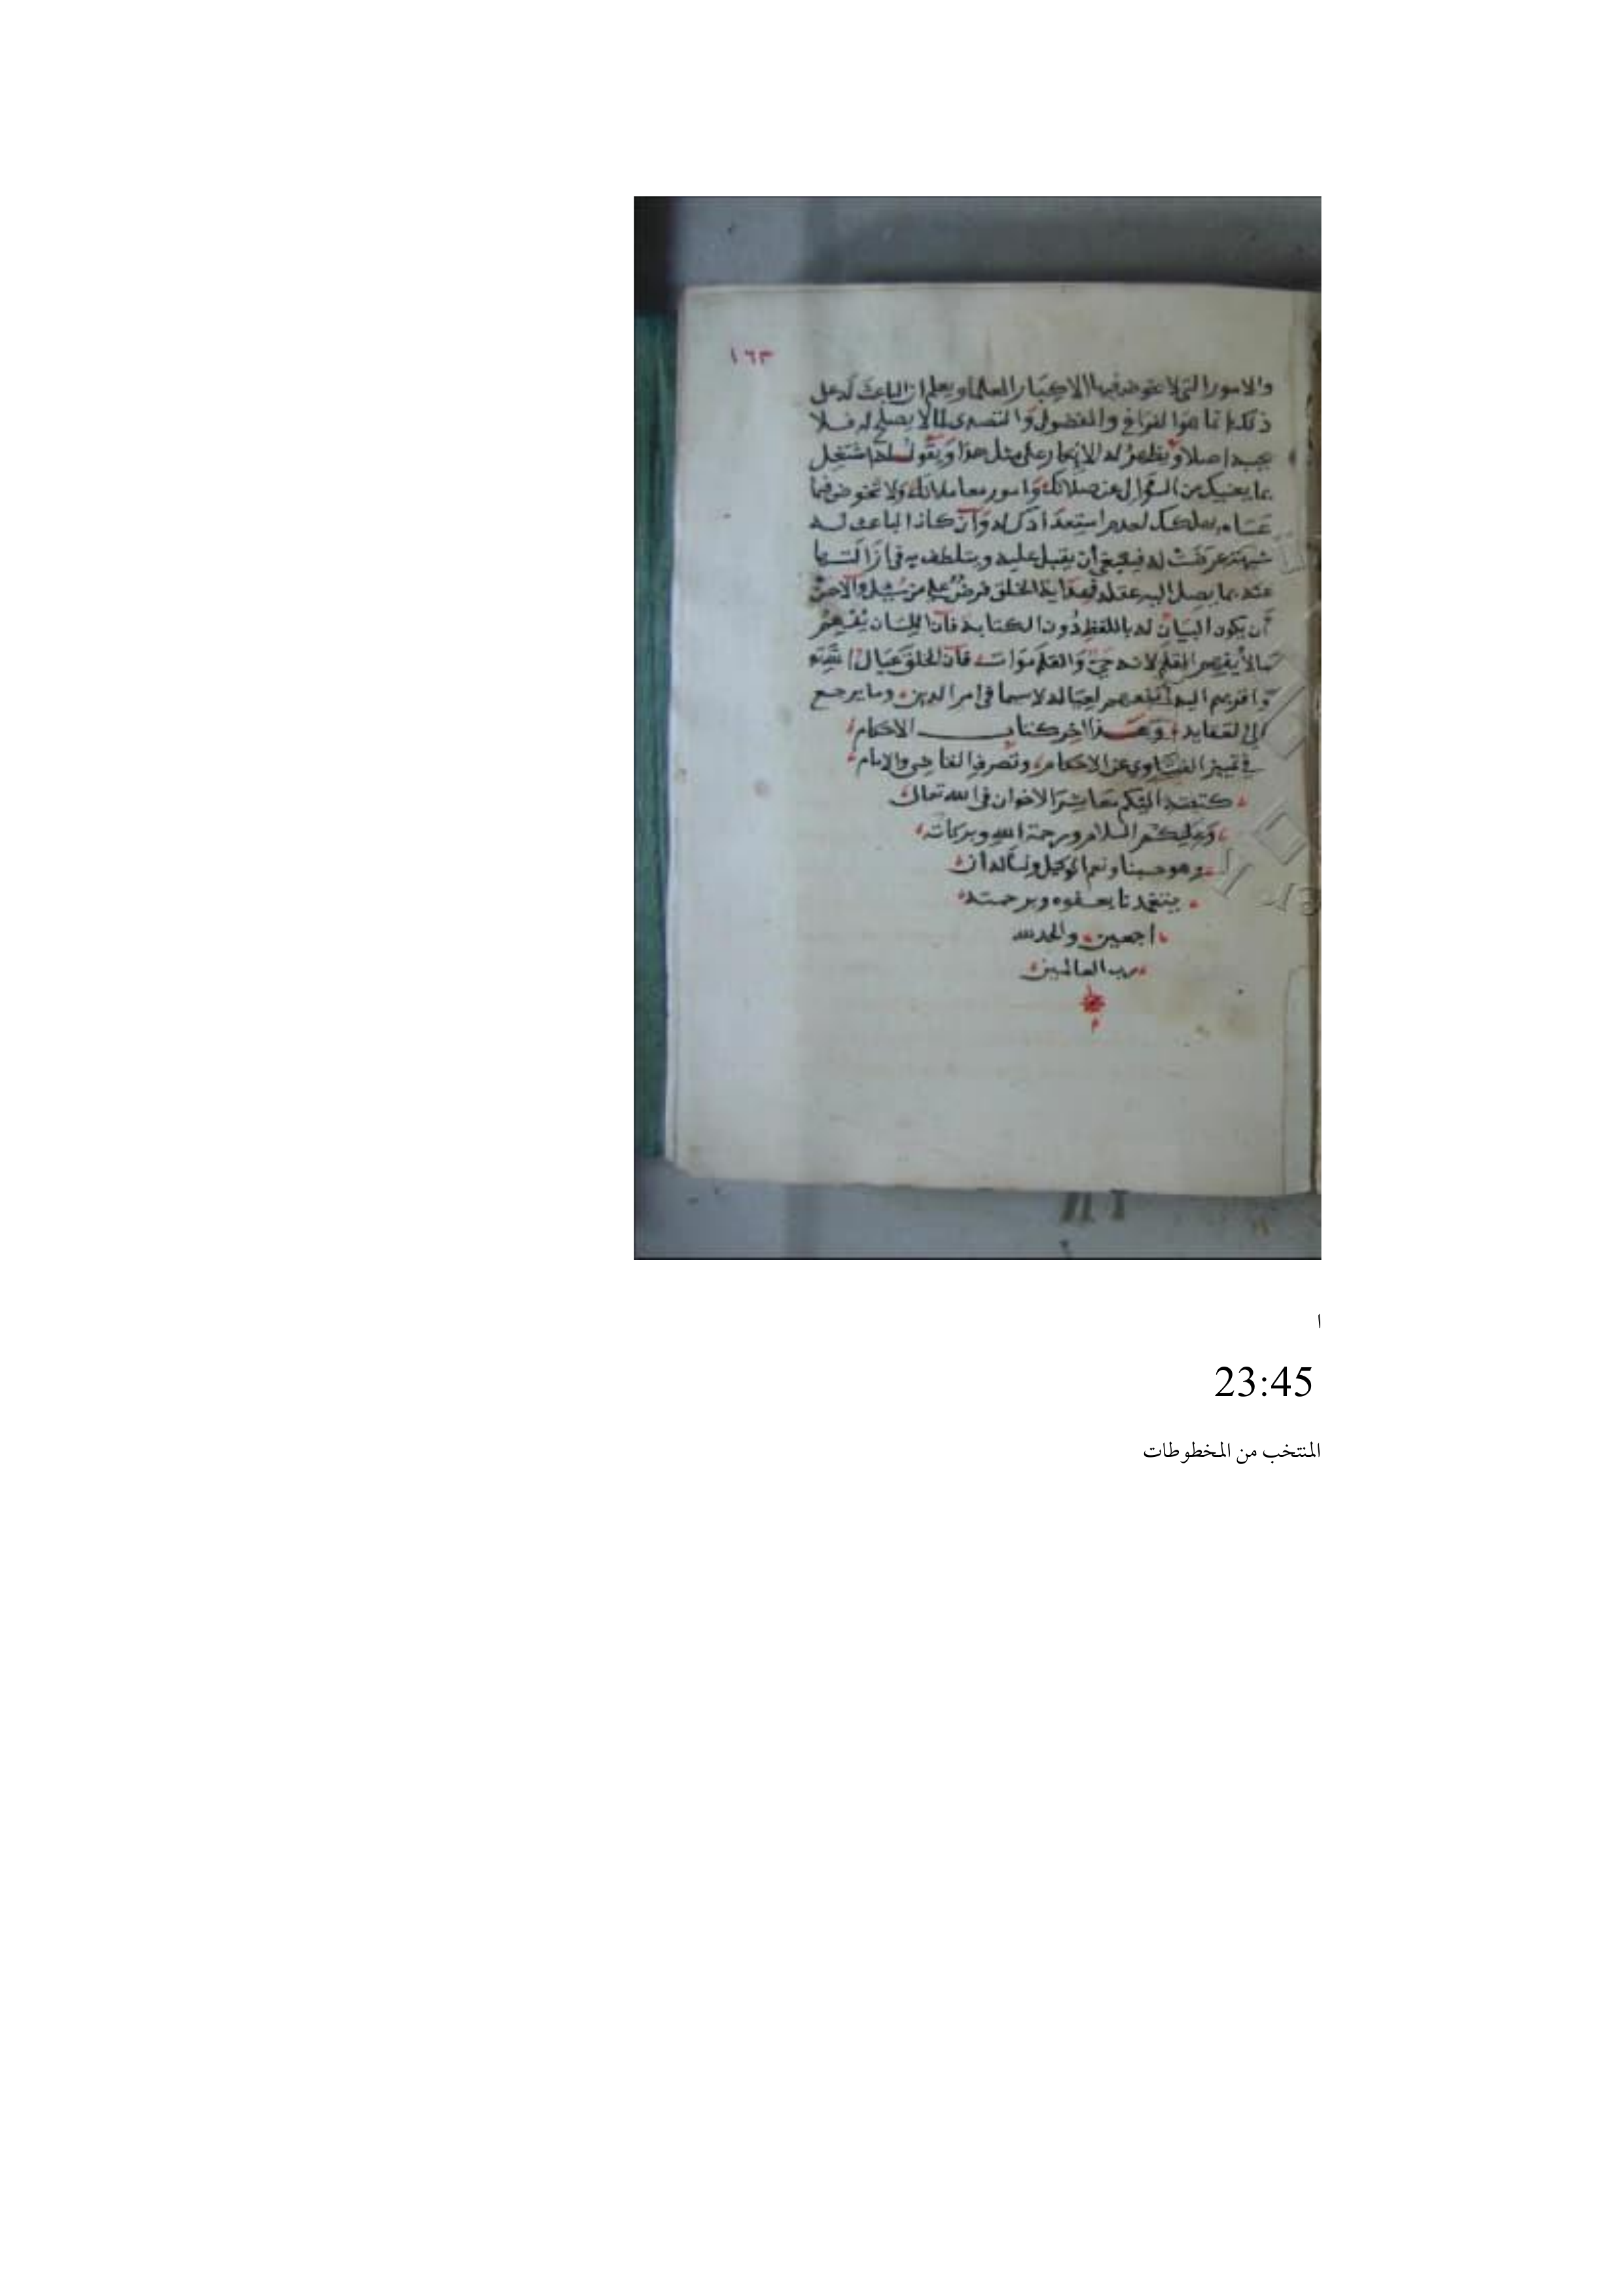 ١٦٣
والامور التي لا يخوض فيها الا كبار العلما ويعلم ان الباعث له على
ذلك انما هو الفراغ والفضول والتصدى لما لا يصلح له فلا
يجبه اصلا ويظهر له الانكار على مثل هذا ويقول له اشتغل
بما يعنيك من السؤال عن صلاتك وامور معاملاتك ولا تخوض فيما
عساه يهلكك لعدم استعدادك له وان كان الباعث له
شبهة عرضت له فينبغي أن يقبل عليه ويتلطف به في ازالتها
عنه بما يصل اليه عقله فهداية الخلق فرض على من سئل والاحسن
أن يكون البيان له باللفظ دون الكتابة فان اللسان يفهم
مالا يفهم القلم لانه حي والقلم موات فان الخلق عيال الله
واقربهم اليه أنفعهم لعياله لاسيما في امر الدين وما يرجع
الى العقايد وهذا اخر كتاب الاحكام
في تمييز الفتاوى عن الاحكام وتصرف القاضى والامام
كتبته اليكم معاشر الاخوان في الله تعالى
وعليكم السلام ورحمة الله وبركاته
وهو حسبنا ونعم الوكيل ونساله ان
يتغمدنا بعفوه وبرحمته
اجمعين والحمد لله
رب العالمين
ا
23:45
المنتخب من المخطوطات